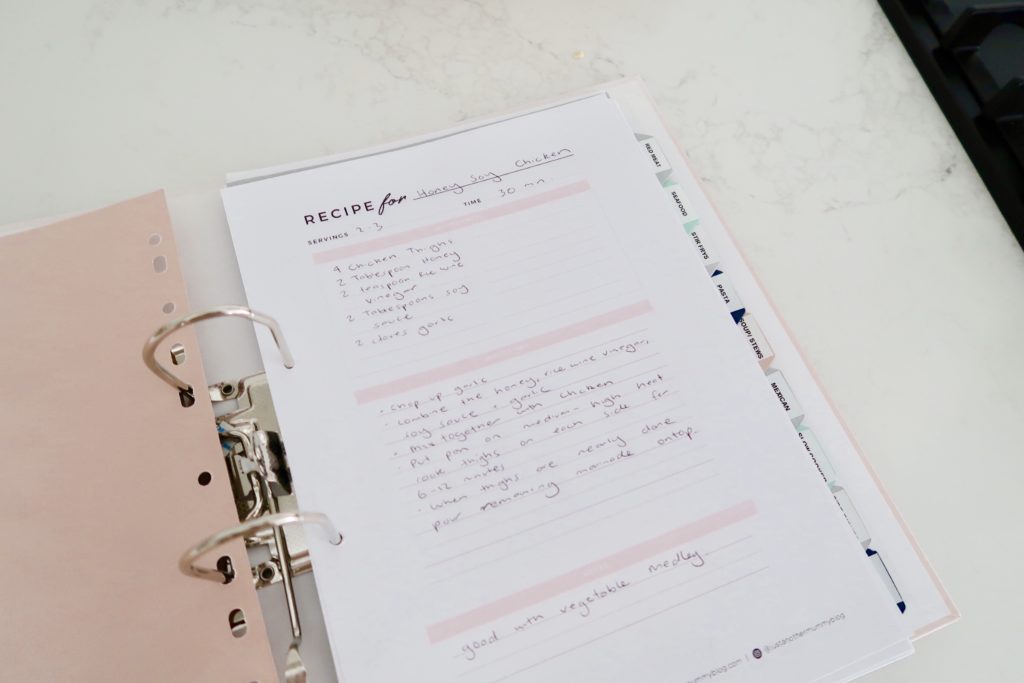 RECIPE for Honey Soy Chicken
SERVINGS 2-3 TIME 30 min.
4 Chicken Thighs
2 Tablespoon Honey
2 teaspoon Rice wine
vinegar
2 Tablespoons soy
sauce
2 cloves garlic
• Chop up garlic
• combine the honey, rice wine vinegar,
soy sauce + garlic
• mix together with chicken
• Put pan on medium-high heat
cook thighs on each side for
6-12 minutes
• when thighs are nearly done
pour remaining marinade ontop.
good with vegetable medley.
ummyblog.com | @justanothermummyblog
RED MEAT
SEAFOOD
STIR FRYS
PASTA
SOUP/ STEWS
MEXICAN